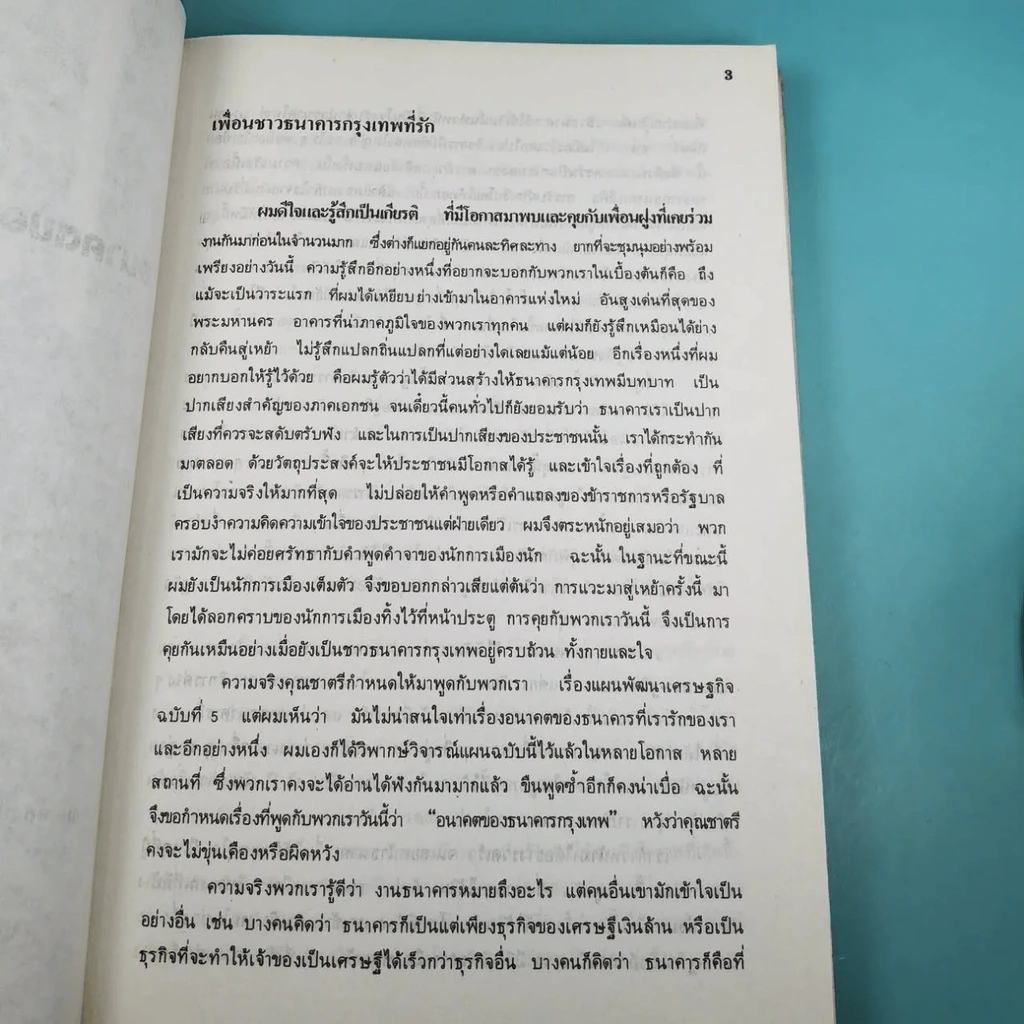 3
เพื่อนชาวธนาคารกรุงเทพที่รัก
ผมดีใจและรู้สึกเป็นเกียรติ ที่มีโอกาสมาพบและคุยกับเพื่อนฝูงที่เคยร่วม
งานกันมาก่อนในจำนวนมาก ซึ่งต่างก็แยกอยู่กันคนละทิศละทาง ยากที่จะชุมนุมอย่างพร้อม
เพรียงอย่างวันนี้ ความรู้สึกอีกอย่างหนึ่งที่อยากจะบอกกับพวกเราในเบื้องต้นก็คือ ถึง
แม้จะเป็นวาระแรก ที่ผมได้เหยียบย่างเข้ามาในอาคารแห่งใหม่ อันสูงเด่นที่สุดของ
พระมหานคร อาคารที่น่าภาคภูมิใจของพวกเราทุกคน แต่ผมก็ยังรู้สึกเหมือนได้ย่าง
กลับคืนสู่เหย้า ไม่รู้สึกแปลกถิ่นแปลกที่แต่อย่างใดเลยแม้แต่น้อย อีกเรื่องหนึ่งที่ผม
อยากบอกให้รู้ไว้ด้วย คือผมรู้ตัวว่าได้มีส่วนสร้างให้ธนาคารกรุงเทพมีบทบาท เป็น
ปากเสียงสำคัญของภาคเอกชน จนเดี๋ยวนี้คนทั่วไปก็ยังยอมรับว่า ธนาคารเราเป็นปาก
เสียงที่ควรจะสดับตรับฟัง และในการเป็นปากเสียงของประชาชนนั้น เราได้กระทำกัน
มาตลอด ด้วยวัตถุประสงค์จะให้ประชาชนมีโอกาสได้รู้ และเข้าใจเรื่องที่ถูกต้อง ที่
เป็นความจริงให้มากที่สุด ไม่ปล่อยให้คำพูดหรือคำแถลงของข้าราชการหรือรัฐบาล
ครอบงำความคิดความเข้าใจของประชาชนแต่ฝ่ายเดียว ผมจึงตระหนักอยู่เสมอว่า พวก
เรามักจะไม่ค่อยศรัทธากับคำพูดคำจาของนักการเมืองนัก ฉะนั้น ในฐานะที่ขณะนี้
ผมยังเป็นนักการเมืองเต็มตัว จึงขอบอกกล่าวเสียแต่ต้นว่า การแวะมาสู่เหย้าครั้งนี้ มา
โดยได้ลอกคราบของนักการเมืองทิ้งไว้ที่หน้าประตู การคุยกับพวกเราวันนี้ จึงเป็นการ
คุยกันเหมือนอย่างเมื่อยังเป็นชาวธนาคารกรุงเทพอยู่ครบถ้วน ทั้งกายและใจ
ความจริงคุณชาตรีกำหนดให้มาพูดกับพวกเรา เรื่องแผนพัฒนาเศรษฐกิจ
ฉบับที่ 5 แต่ผมเห็นว่า มันไม่น่าสนใจเท่าเรื่องอนาคตของธนาคารที่เรารักของเรา
และอีกอย่างหนึ่ง ผมเองก็ได้วิพากษ์วิจารณ์แผนฉบับนี้ไว้แล้วในหลายโอกาส หลาย
สถานที่ ซึ่งพวกเราคงจะได้อ่านได้ฟังกันมามากแล้ว ขืนพูดซ้ำอีกก็คงน่าเบื่อ ฉะนั้น
จึงขอกำหนดเรื่องที่พูดกับพวกเราวันนี้ว่า “อนาคตของธนาคารกรุงเทพ” หวังว่าคุณชาตรี
คงจะไม่ขุ่นเคืองหรือผิดหวัง
ความจริงพวกเรารู้ดีว่า งานธนาคารหมายถึงอะไร แต่คนอื่นเขามักเข้าใจเป็น
อย่างอื่น เช่น บางคนคิดว่า ธนาคารก็เป็นแต่เพียงธุรกิจของเศรษฐีเงินล้าน หรือเป็น
ธุรกิจที่จะทำให้เจ้าของเป็นเศรษฐีได้เร็วกว่าธุรกิจอื่น บางคนก็คิดว่า ธนาคารก็คือที่